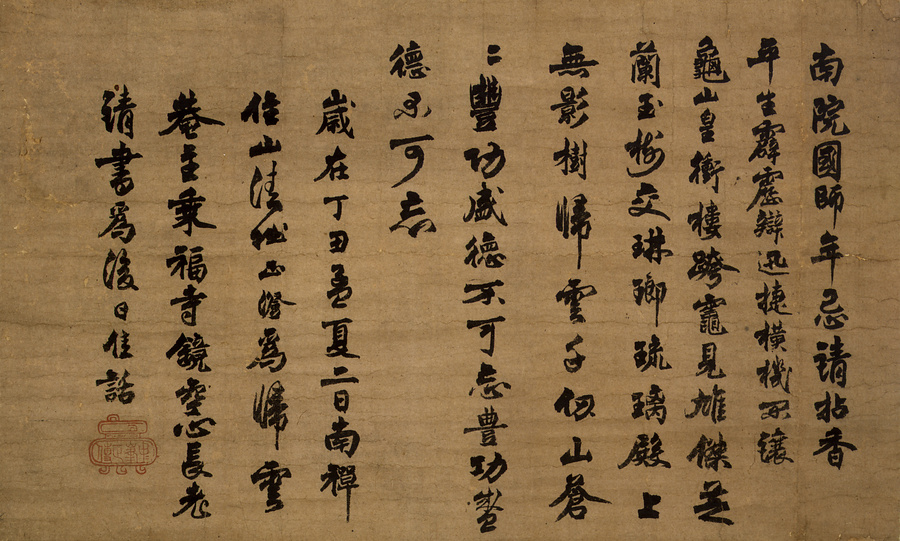 南院國師年忌請拈香
平生霹靂辯迅捷橫機不讓
龜山皇衝樓跨竈見雄傑芝
蘭玉樹交琳瑯琉璃殿上
無影樹歸雲千仞山蒼
〻豐功盛德不可忘豊功盛
德不可忘
歲在丁丑孟夏二日南禪
住山清拙正澄爲歸雲
菴主乗福寺鏡空心長老
請書爲後日佳話